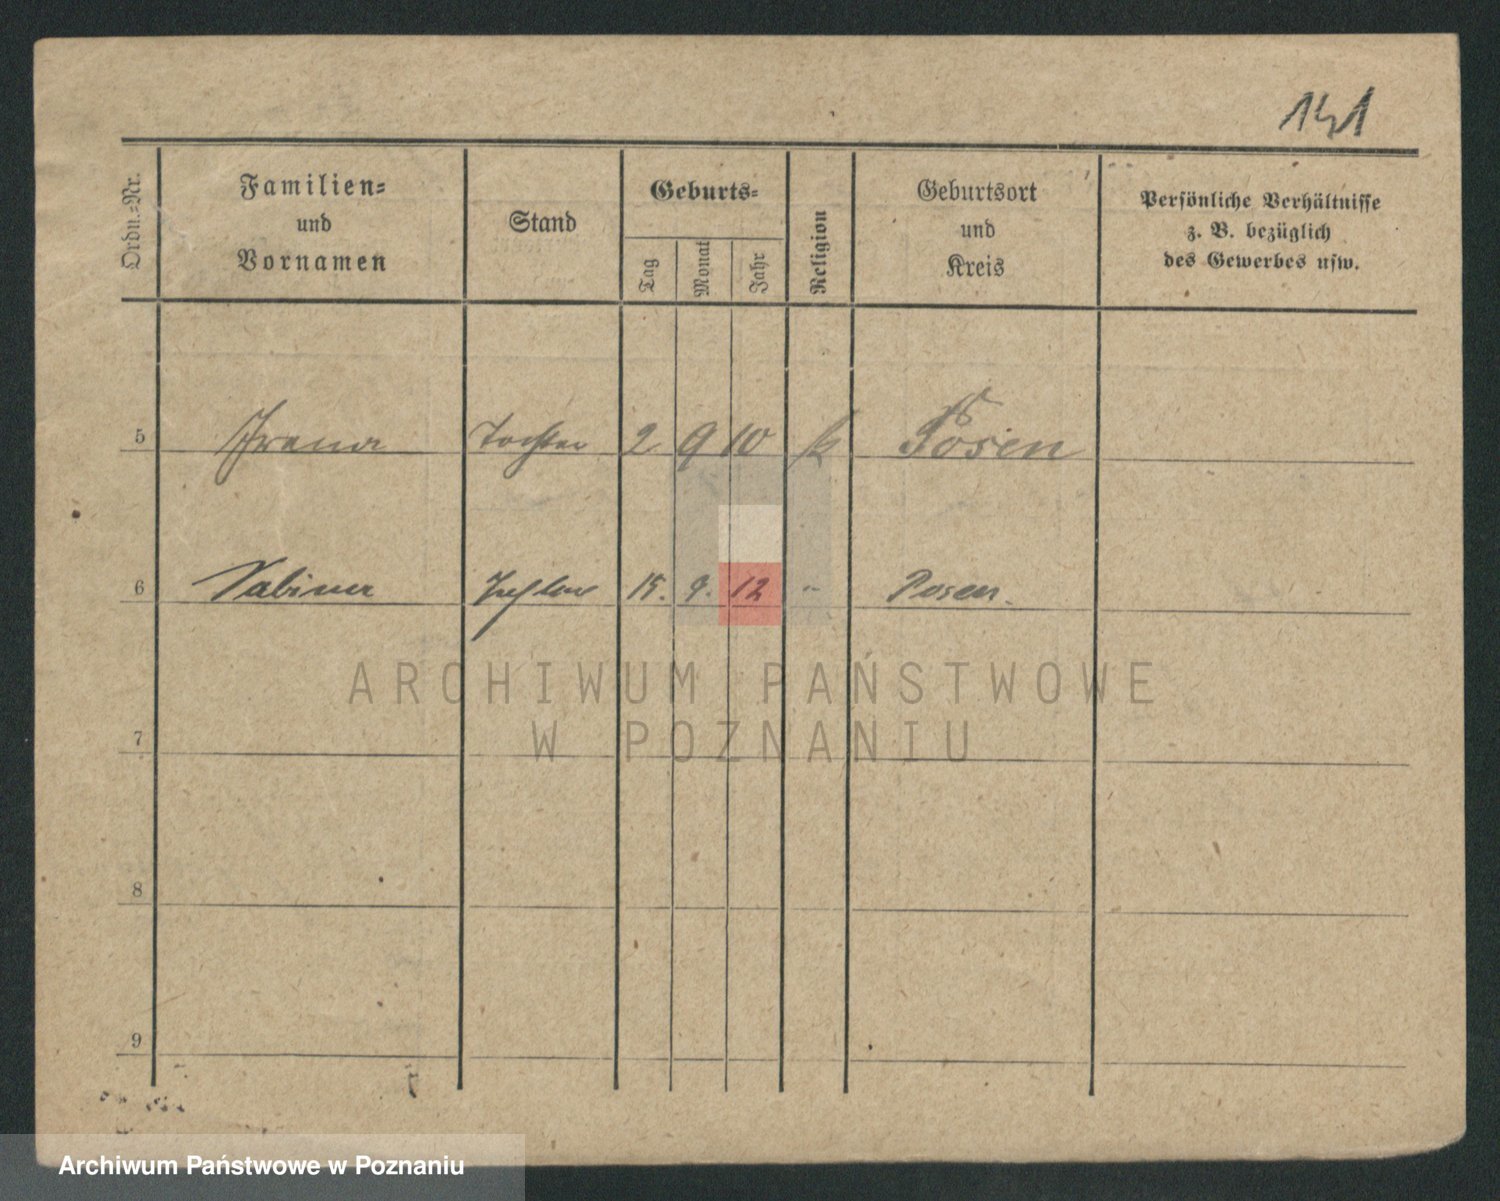 141
Ordn.=Nr.
Familien=
und
Vornamen
Stand
Geburts=
Tag
Monat
Jahr
Religion
Geburtsort
und
Kreis
Persönliche Verhältnisse
z. B. bezüglich
des Gewerbes usw.
5 Irena Tochter 2 9 10 k Posen
6 Sabina Tochter 15. 9. 12 - Posen.
ARCHIWUM PAŃSTWOWE
W POZNANIU
7
8
9
Archiwum Państwowe w Poznaniu